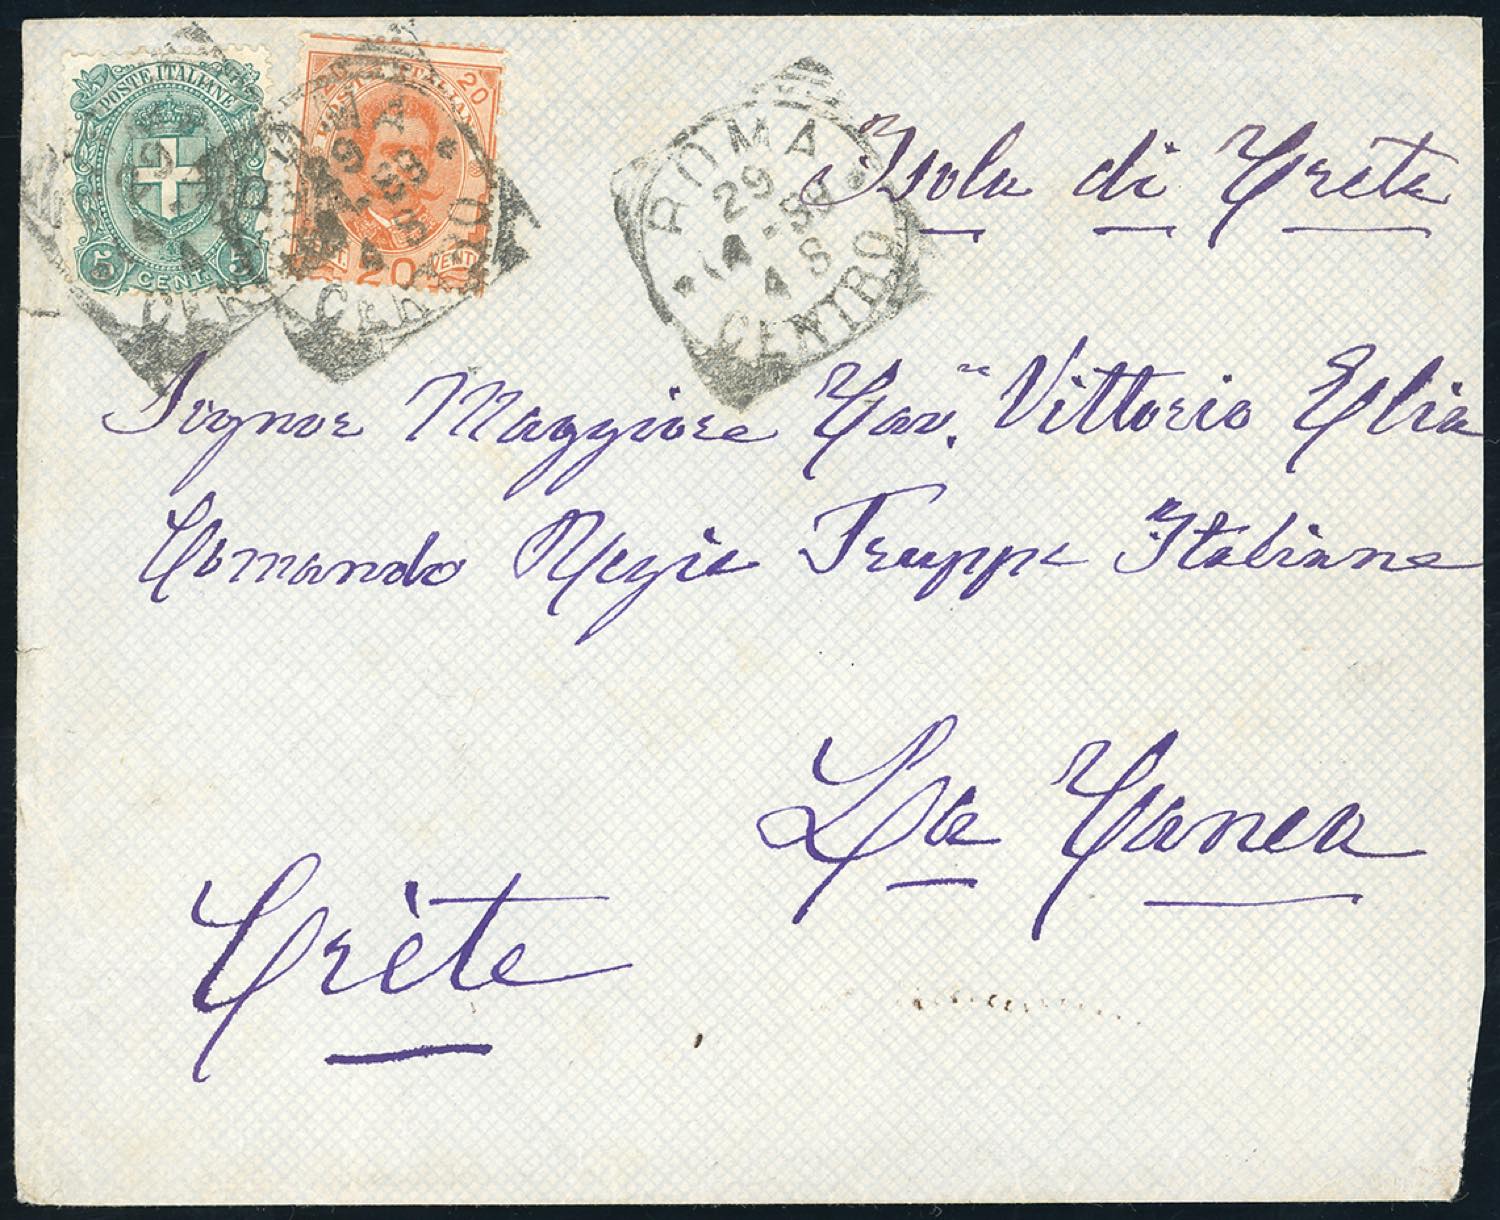 POSTE ITALIANE
5 CENT. 5
20 20
20
ROMA
29
4 S
CENTRO
Isola di Creta
Signor Maggiore Cav. Vittorio Elia
Comando Regie Truppe Italiane
La Canea
Crète